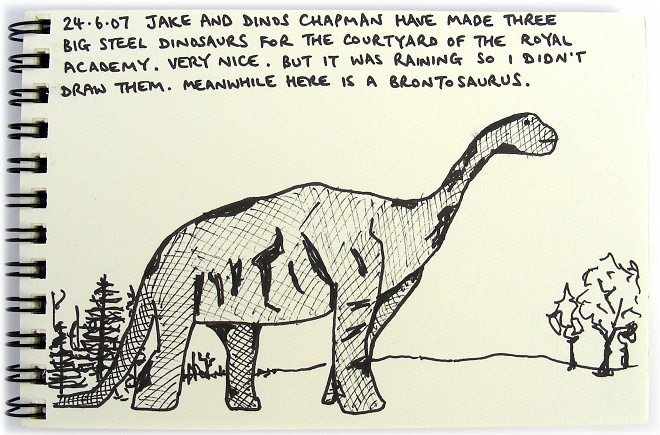 24.6.07 JAKE AND DINOS CHAPMAN HAVE MADE THREE
BIG STEEL DINOSAURS FOR THE COURTYARD OF THE ROYAL
ACADEMY. VERY NICE. BUT IT WAS RAINING SO I DIDN'T
DRAW THEM. MEANWHILE HERE IS A BRONTOSAURUS.